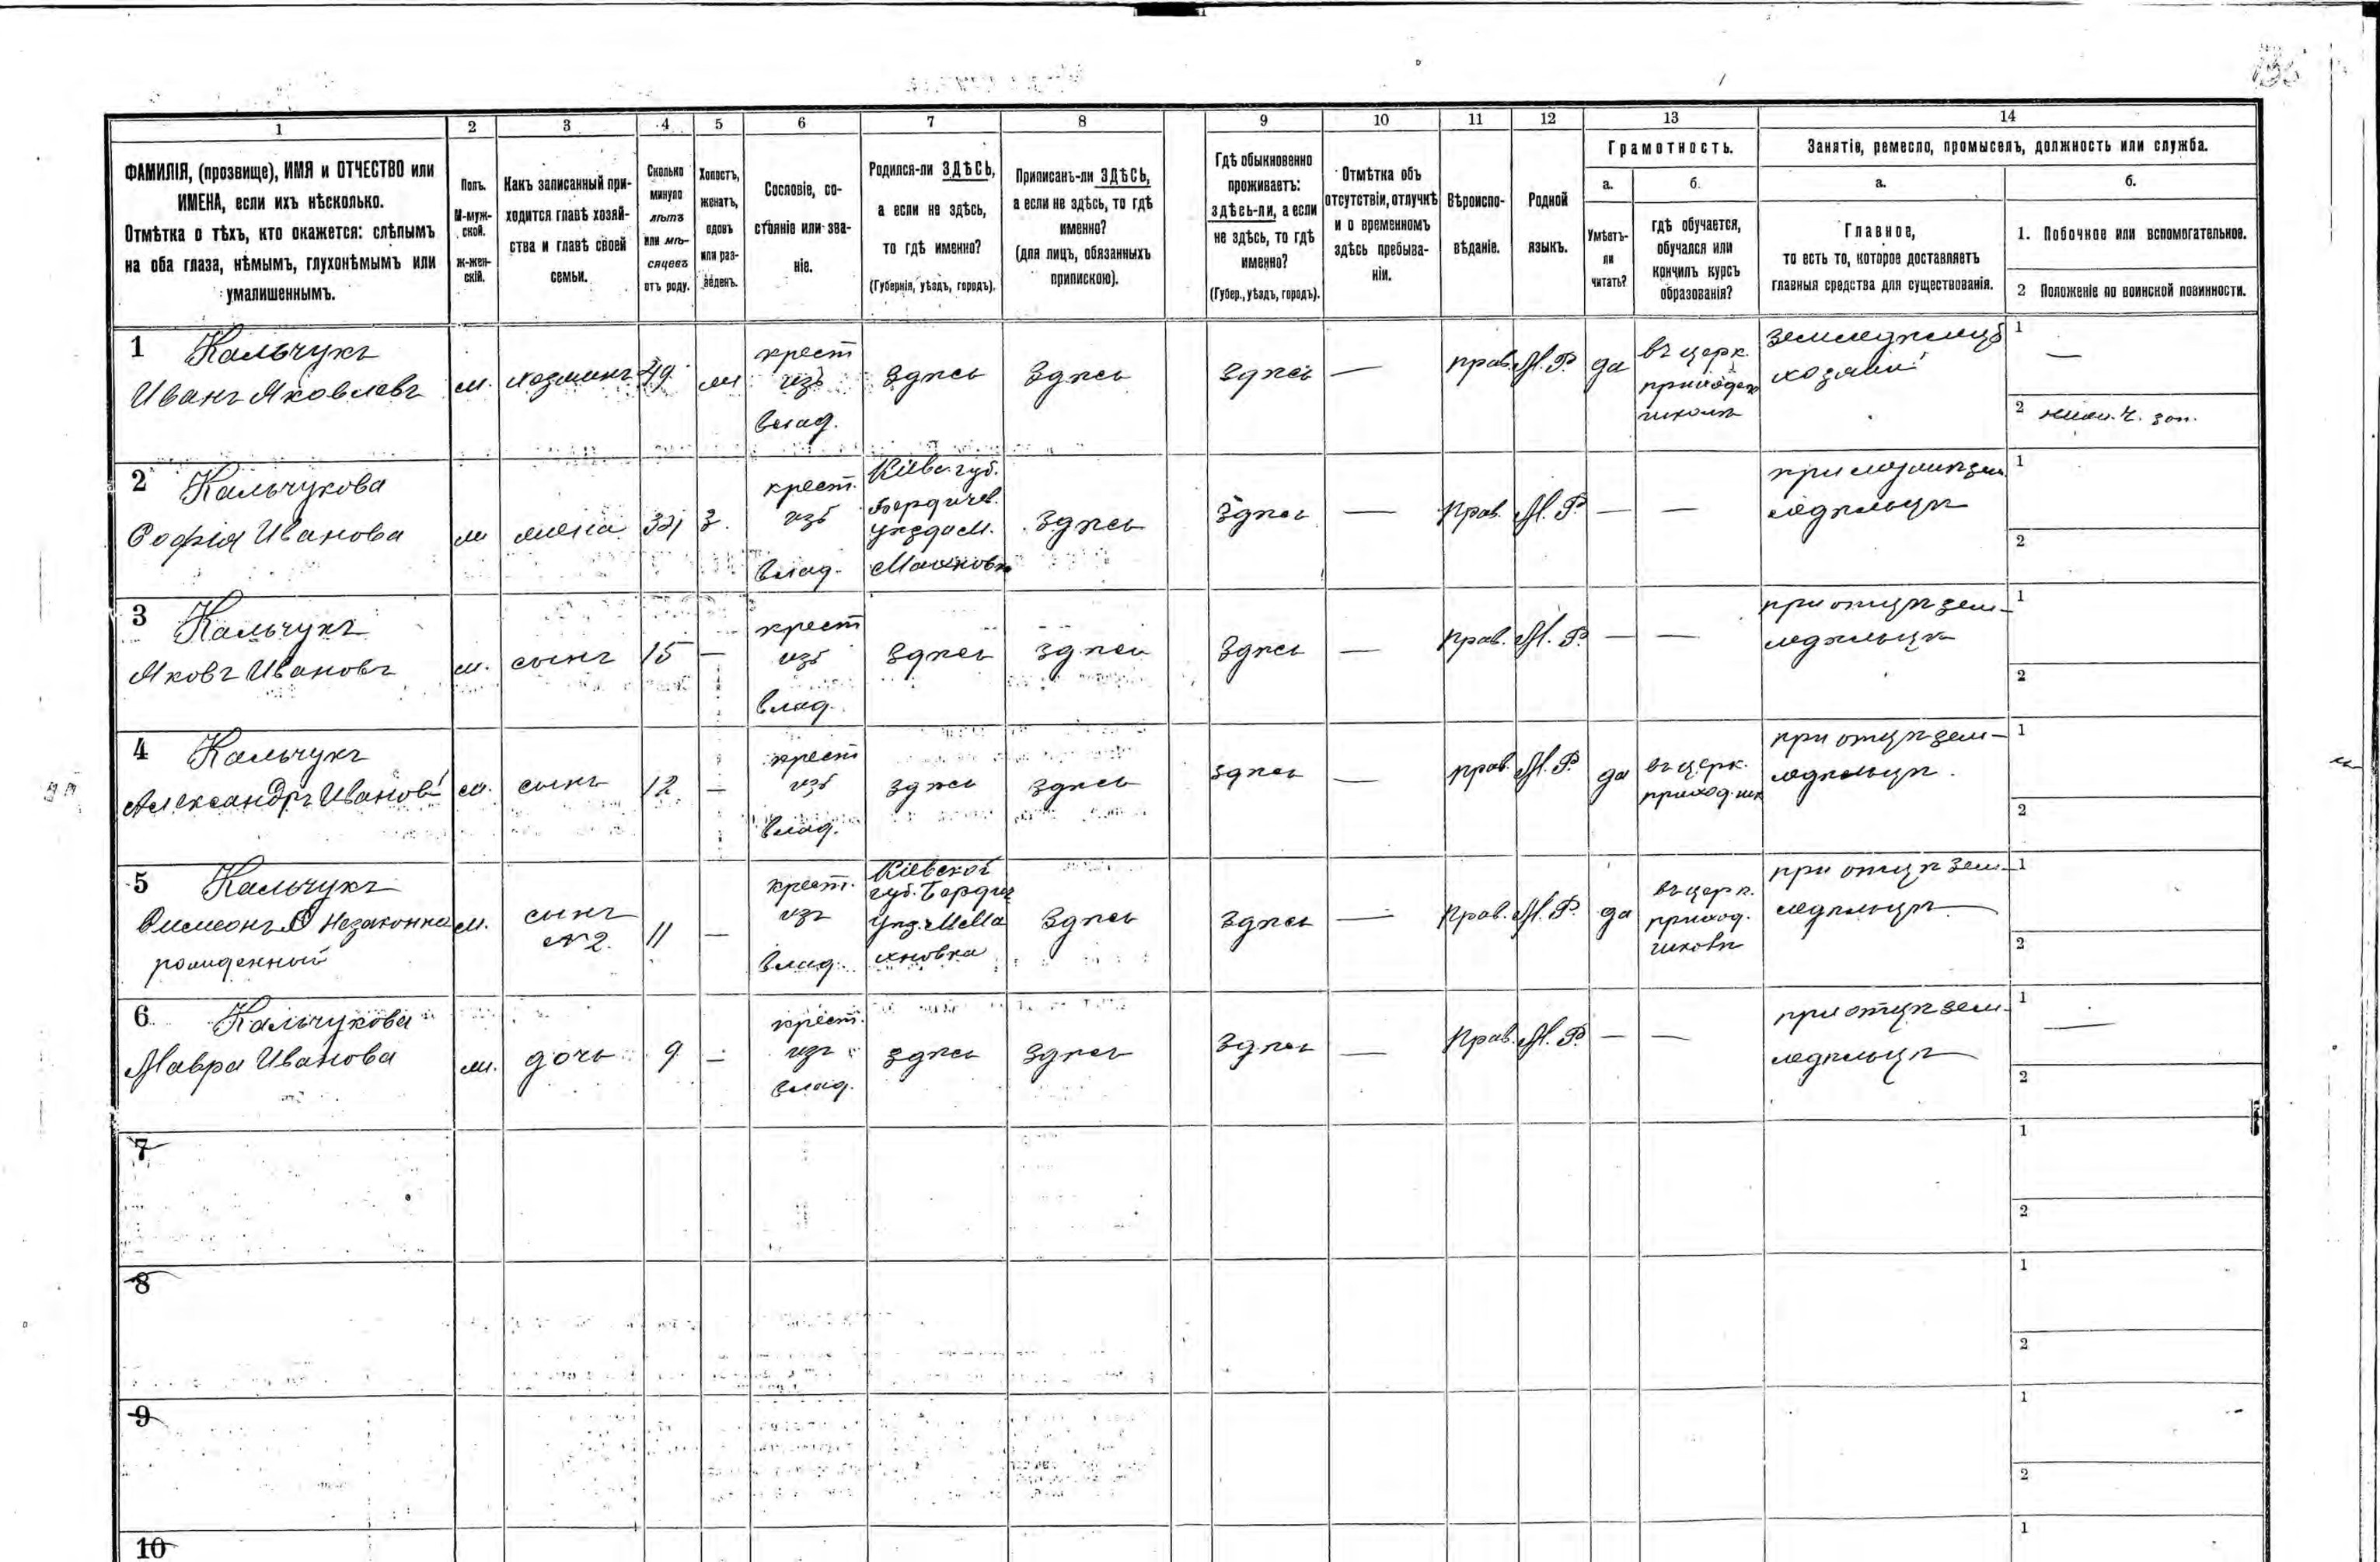 1 2 3 4 5 6 7 8 9 10 11 12 13 14
ФАМИЛІЯ, (прозвище), ИМЯ и ОТЧЕСТВО или
ИМЕНА, если ихъ нѣсколько.
Отмѣтка о тѣхъ, кто окажется: слѣпымъ
на оба глаза, нѣмымъ, глухонѣмымъ или
умалишеннымъ.
Полъ.
М-муж-
ской.
ж-жен-
скій.
Какъ записанный при-
ходится главѣ хозяй-
ства и главѣ своей
семьи.
Сколько
минуло
лѣтъ
или мѣ-
сяцевъ
отъ роду.
Холостъ,
женатъ,
вдовъ
или раз-
веденъ.
Сословіе, со-
стояніе или зва-
ніе.
Родился-ли ЗДѢСЬ,
а если не здѣсь,
то гдѣ именно?
(Губернія, уѣздъ, городъ).
Приписанъ-ли ЗДѢСЬ,
а если не здѣсь, то гдѣ
именно?
(для лицъ, обязанныхъ
припискою).
Гдѣ обыкновенно
проживаетъ:
здѣсь-ли, а если
не здѣсь, то гдѣ
именно?
(Губер., уѣздъ, городъ).
Отмѣтка объ
отсутствіи, отлучкѣ
и о временномъ
здѣсь пребыва-
ніи.
Вѣроиспо-
вѣданіе.
Родной
языкъ.
Грамотность.
а.
Умѣетъ-
ли
читать?
б.
гдѣ обучается,
обучался или
кончилъ курсъ
образованія?
Занятіе, ремесло, промыселъ, должность или служба.
а.
Главное,
то есть то, которое доставляетъ
главныя средства для существованія.
б.
1. Побочное или вспомогательное.
2 Положеніе по воинской повинности.
1 Кальчукъ
Иванъ Яковлевъ
м.
хозяинъ
крест
изъ
влад.
здѣсь
здѣсь
здѣсь
—
прав.
М. Р.
да
въ церк.
приходск
школѣ
земледѣлецъ
хозяинъ
1 —
2
2 Кальчукова
Софія Ивановa
жена
з.
крест.
изъ
влад.
Кіевс. губ.
Бердичев.
уѣзда М.
Махновк
здѣсь
здѣсь
—
прав.
М. Р.
—
—
при мужѣ зем
ледѣльцѣ
1
2
3 Кальчукъ
Яковъ Ивановъ
м.
сынъ
15
—
крест
изъ
влад.
здѣсь
здѣсь
здѣсь
—
прав.
М. Р.
—
—
при отцѣ зем-
ледѣльцѣ
1
2
4 Кальчукъ
Александръ Ивановъ
м.
сынъ
12
—
крест
изъ
влад.
здѣсь
здѣсь
здѣсь
—
прав.
М. Р.
да
въ церк.
приход. шк
при отцѣ зем-
ледѣльцѣ.
1
2
5 Кальчукъ
Симеонъ незаконно
рожденной
м.
сынъ
№2.
11
—
крест.
изъ
влад.
Кіевской
губ. Бердич
уѣз. М Ма
хновка
здѣсь
здѣсь
—
прав.
М. Р.
да
въ церк.
приход.
школѣ
при отцѣ зем-
ледѣльцѣ
1
2
6 Кальчукова
Мавра Иванова
ж.
дочь
9
—
крест.
изъ
влад.
здѣсь
здѣсь
здѣсь
—
прав.
М. Р.
—
—
при отцѣ зем-
ледѣльцѣ
1 —
2
7
1
2
8
1
2
9
1
2
10
1